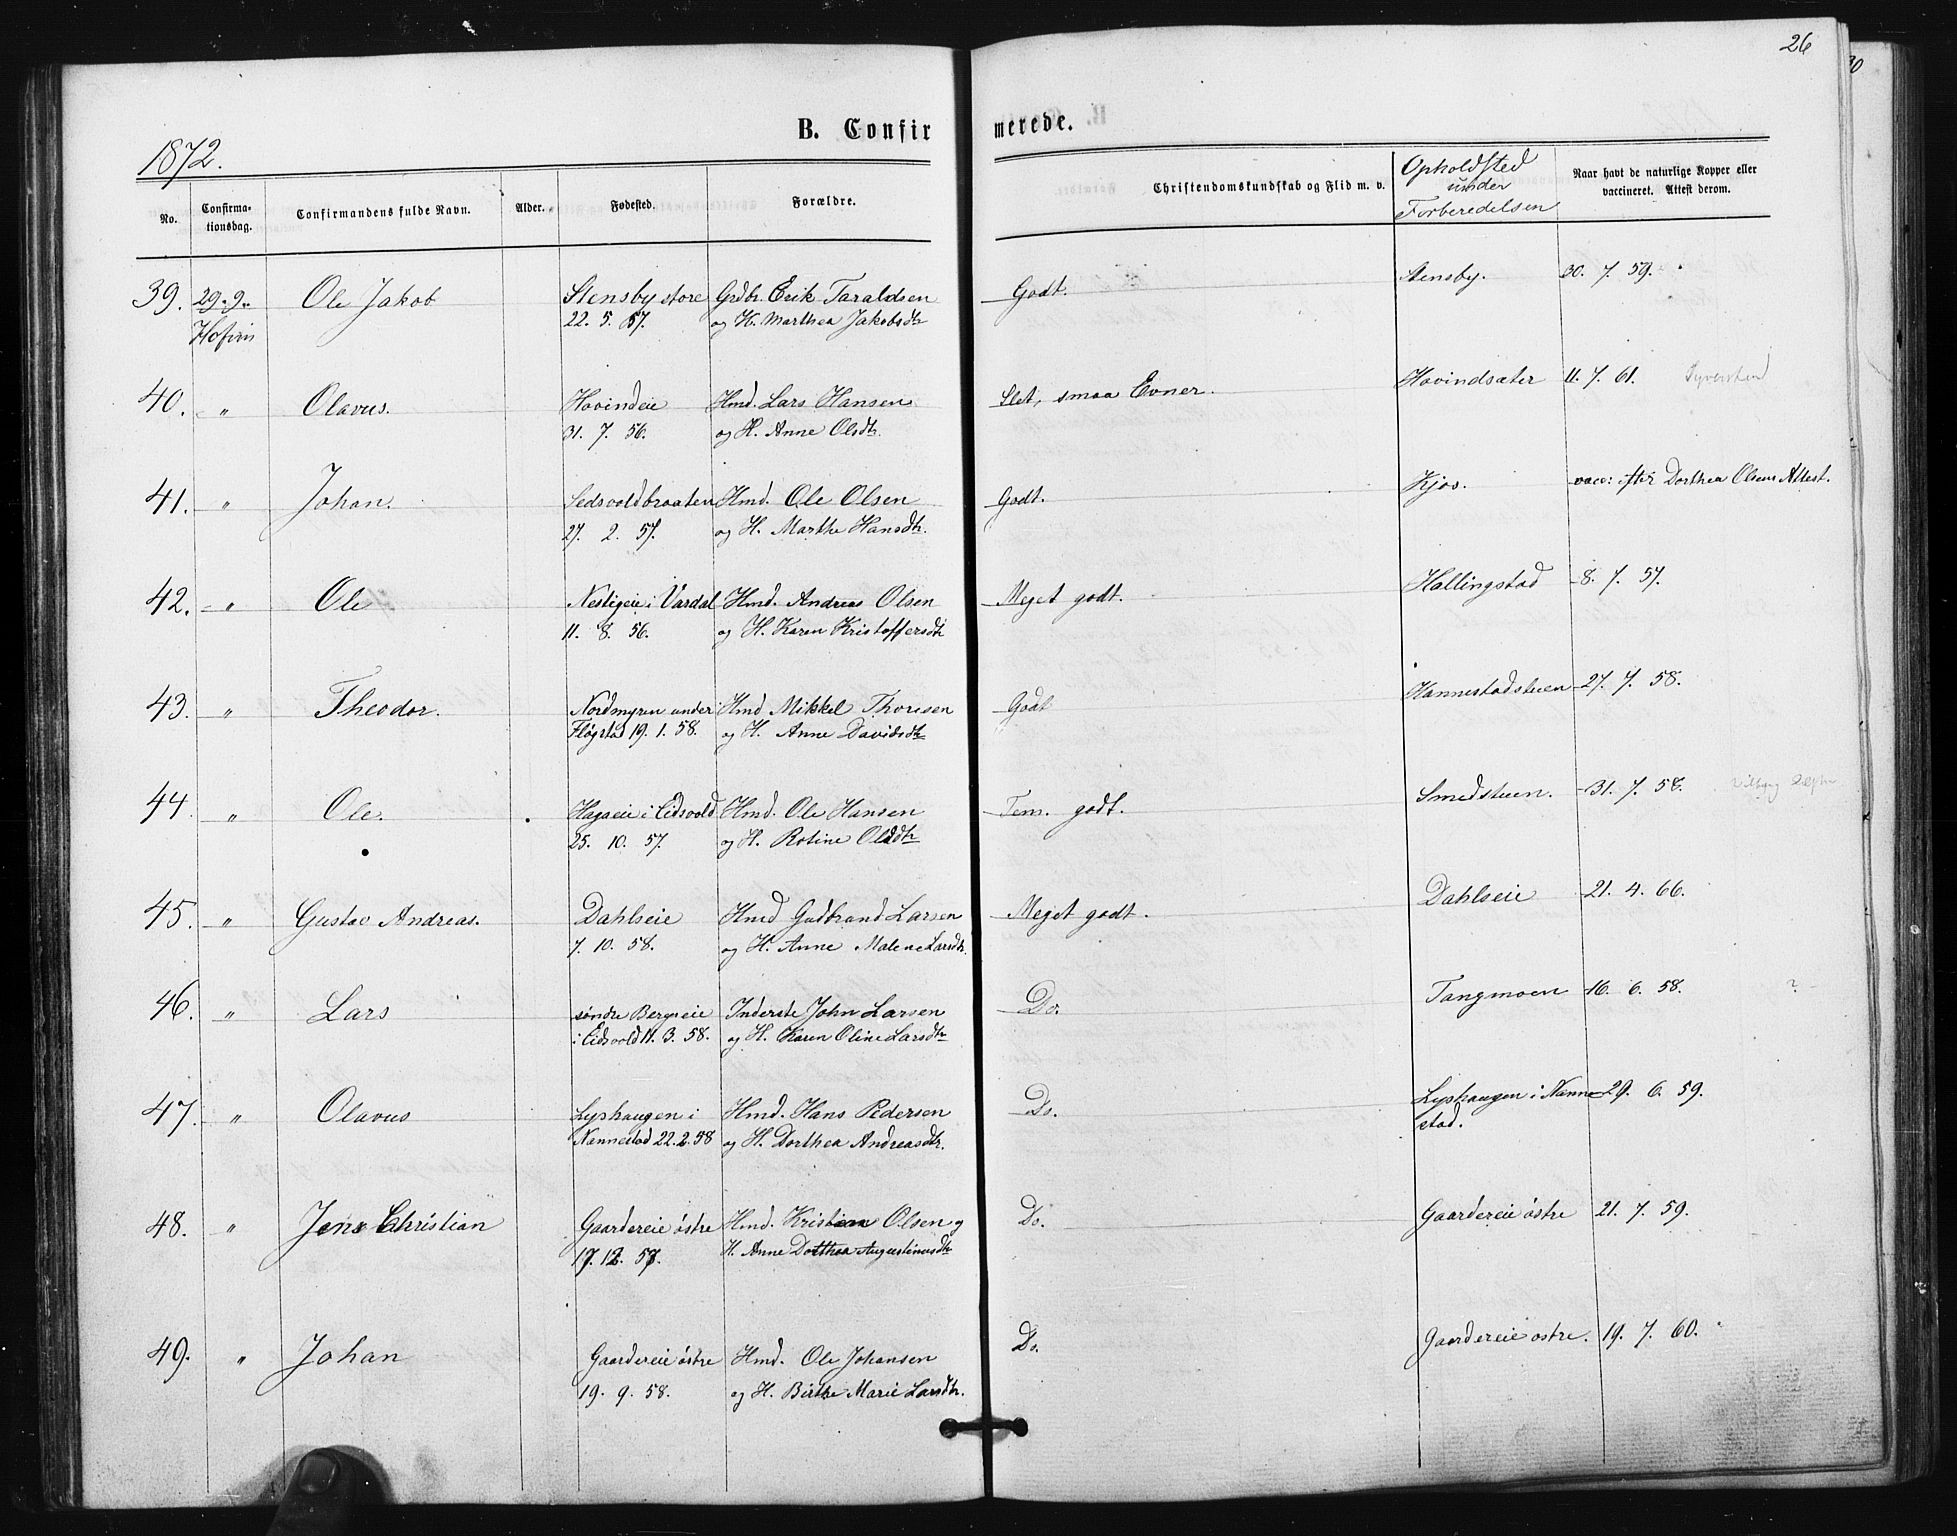 26
B. Confir merede.
1872.
No. Confirma- tionsdag. Confirmandens fulde Navn. Alder. Fødested. Forældre. Christendomskundskab og Flid m. v. Opholdsted under Forberedelsen Naar havt de naturlige Kopper eller vaccineret. Attest derom.
39. 29.9. Ole Jakob Stensby store Grdbr. Erik Taraldsen Godt. Stensby. 30. 7. 59.
Hofvin 22. 5. 57. og H. Marthea Jakobsdtr
40. " Olavus. Hovindeie Hmd. Lars Hansen Slet, smaa Evner. Hovindsæter 11. 7. 61.
31. 7. 56. og H. Anne Olsdtr.
41. " Johan. Sedsvoldbraaten Hmd. Ole Olsen Godt. Kjos. vacc: efter Dorthea Olsens Attest.
27. 2. 57. og H. Marthe Hansdtr.
42. " Ole Nestigeie i Vardal Hmd. Andreas Olsen Meget godt. Hallingstad 8. 7. 57.
11. 8. 56. og H. Karen Kristoffersdtr
43. " Theodor. Nordmyren under Hmd Mikkel Thoresen Godt Hannestadstuen 27. 7. 58.
Fløgstad 19. 1. 58. og H. Anne Davidsdtr
44. " Ole. Hagaeie i Eidsvold Hmd. Ole Hansen Tem. godt. Smedstuen. 31. 7. 58.
25. 10. 57. og H. Rotine Olsdtr
45. " Gustav Andreas. Dahlseie Hmd Gudbrand Larsen Meget godt. Dahlseie 21. 4. 66.
7. 10. 58. og H. Anne Malene Larsdtr.
46. " Lars søndre Bergseie Inderste John Larsen Do. Tangmoen 16. 6. 58. ?
i Eidsvold 11. 3. 58. og H. Karen Oline Larsdtr
47. " Olavus Lyshaugen i Hmd. Hans Pedersen Do. Lyshaugen i Nanne- 29. 6. 59.
Nannestad 22. 2. 58 og H. Dorthea Andreasdtr. stad.
48. " Jens Christian Gaardereie østre Hmd. Kristian Olsen og Do. Gaardereie østre 21. 7. 59.
17. 12. 57. H. Anne Dorthea Augustinusdtr
49. " Johan Gaardereie østre Hmd. Ole Johansen Do. Gaardereie østre. 19. 7. 60.
19. 9. 58. og H. Birthe Marie Larsdtr.